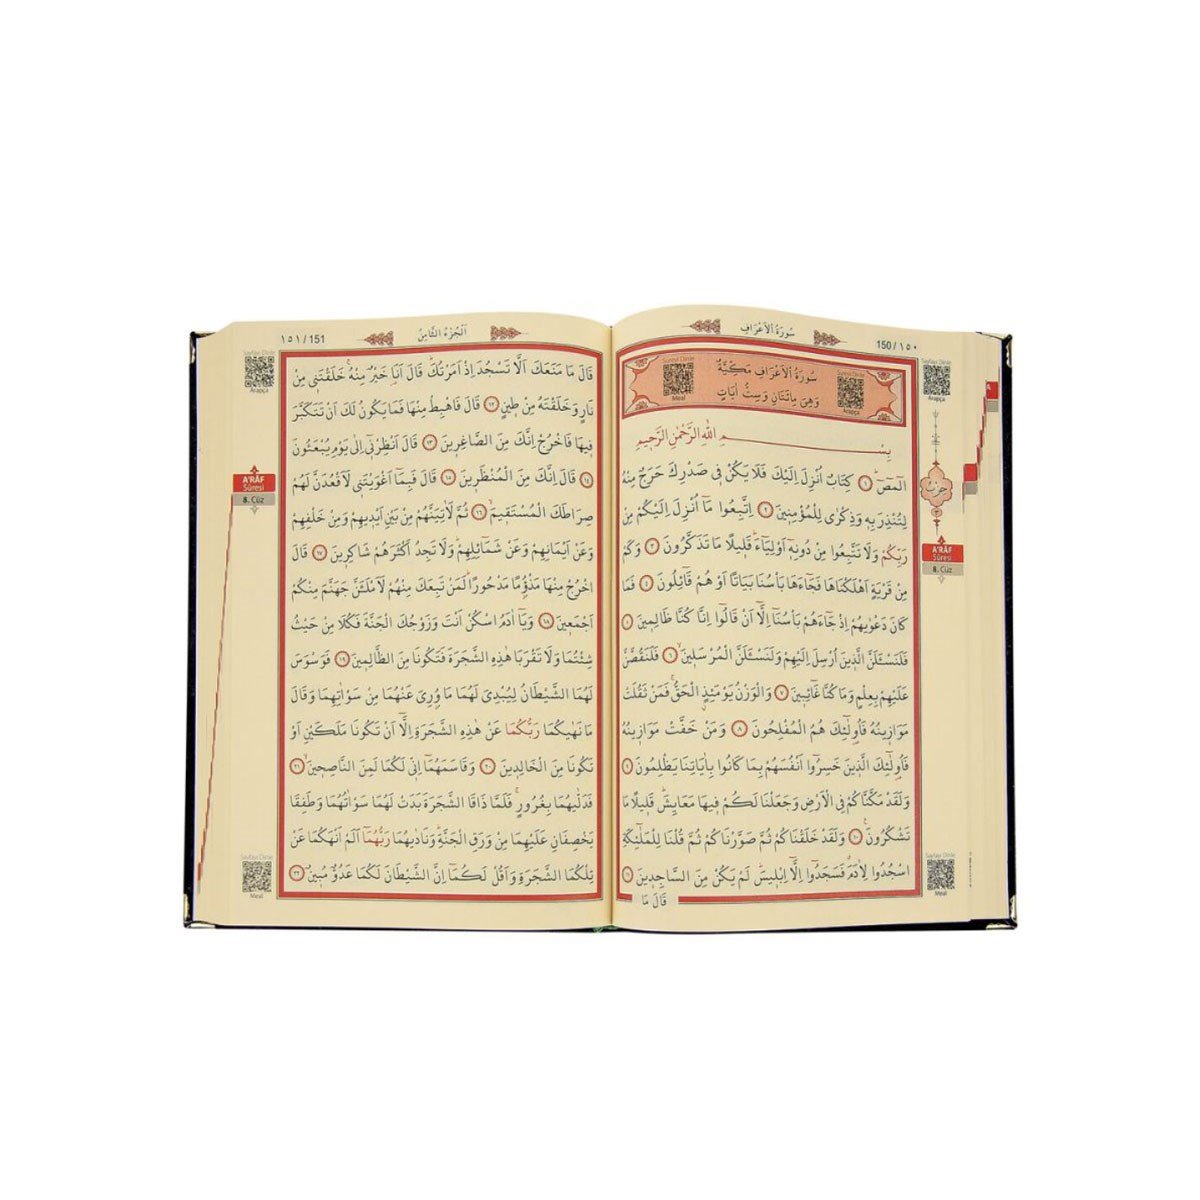 سُورَةُ الْاَعْرَافِ
150/١٥٠
سُورَةُ الْاَعْرَافِ مَكِّيَّةٌ
وَهِىَ مِائَتَانِ وَسِتُّ اٰيَاتٍ
Sureyi Dinle
Meal
Sureyi Dinle
Arapça
بِسْــــــــمِ اللّٰهِ الرَّحْمٰنِ الرَّحٖيمِ
الٓمٓصٓ ۚ ﴿١﴾ كِتَابٌ اُنْزِلَ اِلَيْكَ فَلَا يَكُنْ فٖى صَدْرِكَ حَرَجٌ مِنْهُ
لِتُنْذِرَ بِهٖ وَذِكْرٰى لِلْمُؤْمِنٖينَ ﴿٢﴾ اِتَّبِعُوا مَٓا اُنْزِلَ اِلَيْكُمْ مِنْ
رَبِّكُمْ وَلَا تَتَّبِعُوا مِنْ دُونِهٖٓ اَوْلِيَٓاءَ ۜ قَلٖيلًا مَا تَذَكَّرُونَ ﴿٣﴾ وَكَمْ
مِنْ قَرْيَةٍ اَهْلَكْنَاهَا فَجَٓاءَهَا بَأْسُنَا بَيَاتًا اَوْ هُمْ قَٓائِلُونَ ﴿٤﴾ فَمَا
كَانَ دَعْوٰيهُمْ اِذْ جَٓاءَهُمْ بَأْسُنَٓا اِلَّٓا اَنْ قَالُٓوا اِنَّا كُنَّا ظَالِمٖينَ ﴿٥﴾
فَلَنَسْـَٔلَنَّ الَّذٖينَ اُرْسِلَ اِلَيْهِمْ وَلَنَسْـَٔلَنَّ الْمُرْسَلٖينَ ۙ ﴿٦﴾ فَلَنَقُصَّنَّ
عَلَيْهِمْ بِعِلْمٍ وَمَا كُنَّا غَٓائِبٖينَ ﴿٧﴾ وَالْوَزْنُ يَوْمَئِذٍ الْحَقُّ ۚ فَمَنْ ثَقُلَتْ
مَوَازٖينُهُ فَاُو۬لٰٓئِكَ هُمُ الْمُفْلِحُونَ ﴿٨﴾ وَمَنْ خَفَّتْ مَوَازٖينُهُ
فَاُو۬لٰٓئِكَ الَّذٖينَ خَسِرُٓوا اَنْفُسَهُمْ بِمَا كَانُوا بِاٰيَاتِنَا يَظْلِمُونَ ﴿٩﴾
وَلَقَدْ مَكَّنَّاكُمْ فِى الْاَرْضِ وَجَعَلْنَا لَكُمْ فٖيهَا مَعَايِشَ ۜ قَلٖيلًا مَا
تَشْكُرُونَ ۟ ﴿١٠﴾ وَلَقَدْ خَلَقْنَاكُمْ ثُمَّ صَوَّرْنَاكُمْ ثُمَّ قُلْنَا لِلْمَلٰٓئِكَةِ
اسْجُدُوا لِاٰدَمَ ۗ فَسَجَدُٓوا اِلَّٓا اِبْلٖيسَ ۜ لَمْ يَكُنْ مِنَ السَّاجِدٖينَ ﴿١١﴾
قَالَ مَا
Sayfayı Dinle
Arapça
حزب
A'RÂF
Sûresi
8. Cüz
Sayfayı Dinle
Meal
اَلْجُزْءُ الثَّامِنُ
١٥١/151
قَالَ مَا مَنَعَكَ اَلَّا تَسْجُدَ اِذْ اَمَرْتُكَ ۜ قَالَ اَنَا۬ خَيْرٌ مِنْهُ ۚ خَلَقْتَنٖى مِنْ
نَارٍ وَخَلَقْتَهُ مِنْ طٖينٍ ﴿١٢﴾ قَالَ فَاهْبِطْ مِنْهَا فَمَا يَكُونُ لَكَ اَنْ تَتَكَبَّرَ
فٖيهَا فَاخْرُجْ اِنَّكَ مِنَ الصَّاغِرٖينَ ﴿١٣﴾ قَالَ اَنْظِرْنٖٓى اِلٰى يَوْمِ يُبْعَثُونَ
﴿١٤﴾ قَالَ اِنَّكَ مِنَ الْمُنْظَرٖينَ ﴿١٥﴾ قَالَ فَبِمَٓا اَغْوَيْتَنٖى لَاَقْعُدَنَّ لَهُمْ
صِرَاطَكَ الْمُسْتَقٖيمَ ۙ ﴿١٦﴾ ثُمَّ لَاٰتِيَنَّهُمْ مِنْ بَيْنِ اَيْدٖيهِمْ وَمِنْ خَلْفِهِمْ
وَعَنْ اَيْمَانِهِمْ وَعَنْ شَمَٓائِلِهِمْ ۜ وَلَا تَجِدُ اَكْثَرَهُمْ شَاكِرٖينَ ﴿١٧﴾ قَالَ
اخْرُجْ مِنْهَا مَذْؤُ۫مًا مَدْحُورًا ۜ لَمَنْ تَبِعَكَ مِنْهُمْ لَاَمْلَـَٔنَّ جَهَنَّمَ مِنْكُمْ
اَجْمَعٖينَ ﴿١٨﴾ وَيَٓا اٰدَمُ اسْكُنْ اَنْتَ وَزَوْجُكَ الْجَنَّةَ فَكُلَا مِنْ حَيْثُ
شِئْتُمَا وَلَا تَقْرَبَا هٰذِهِ الشَّجَرَةَ فَتَكُونَا مِنَ الظَّالِمٖينَ ﴿١٩﴾ فَوَسْوَسَ
لَهُمَا الشَّيْطَانُ لِيُبْدِىَ لَهُمَا مَا وُ۫رِىَ عَنْهُمَا مِنْ سَوْاٰتِهِمَا وَقَالَ
مَا نَهٰيكُمَا رَبُّكُمَا عَنْ هٰذِهِ الشَّجَرَةِ اِلَّٓا اَنْ تَكُونَا مَلَكَيْنِ اَوْ
تَكُونَا مِنَ الْخَالِدٖينَ ﴿٢٠﴾ وَقَاسَمَهُمَٓا اِنّٖى لَكُمَا لَمِنَ النَّاصِحٖينَ ۙ ﴿٢١﴾
فَدَلّٰيهُمَا بِغُرُورٍ ۚ فَلَمَّا ذَاقَا الشَّجَرَةَ بَدَتْ لَهُمَا سَوْاٰتُهُمَا وَطَفِقَا
يَخْصِفَانِ عَلَيْهِمَا مِنْ وَرَقِ الْجَنَّةِ ۜ وَنَادٰيهُمَا رَبُّهُمَٓا اَلَمْ اَنْهَكُمَا عَنْ
تِلْكُمَا الشَّجَرَةِ وَاَقُلْ لَكُمَٓا اِنَّ الشَّيْطَانَ لَكُمَا عَدُوٌّ مُبٖينٌ ﴿٢٢﴾
Sayfayı Dinle
Arapça
A'RÂF
Sûresi
8. Cüz
Sayfayı Dinle
Meal